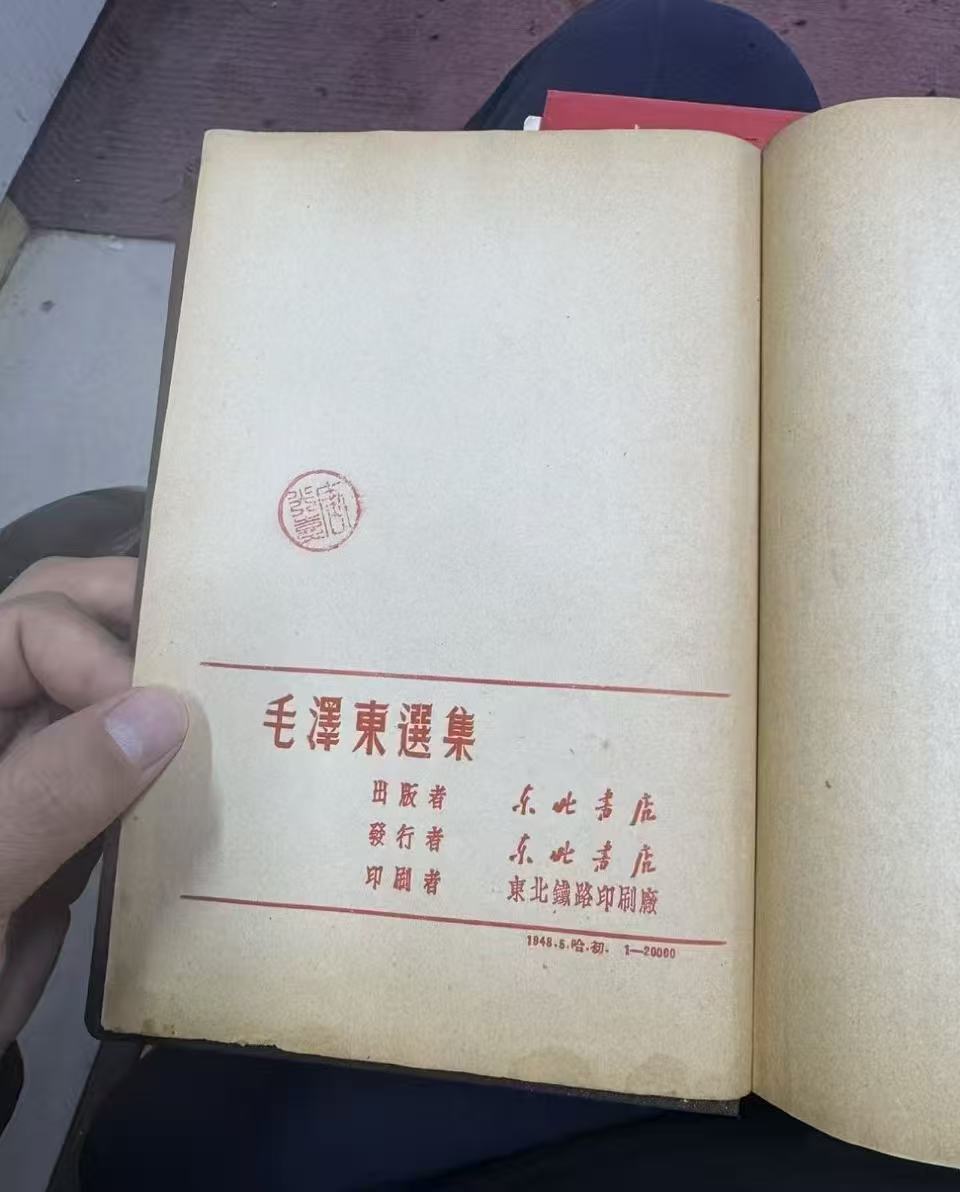 毛澤東選集
出版者 东北書店
發行者 东北書店
印刷者 東北鐵路印刷廠
1948.5.哈.初. 1—20000